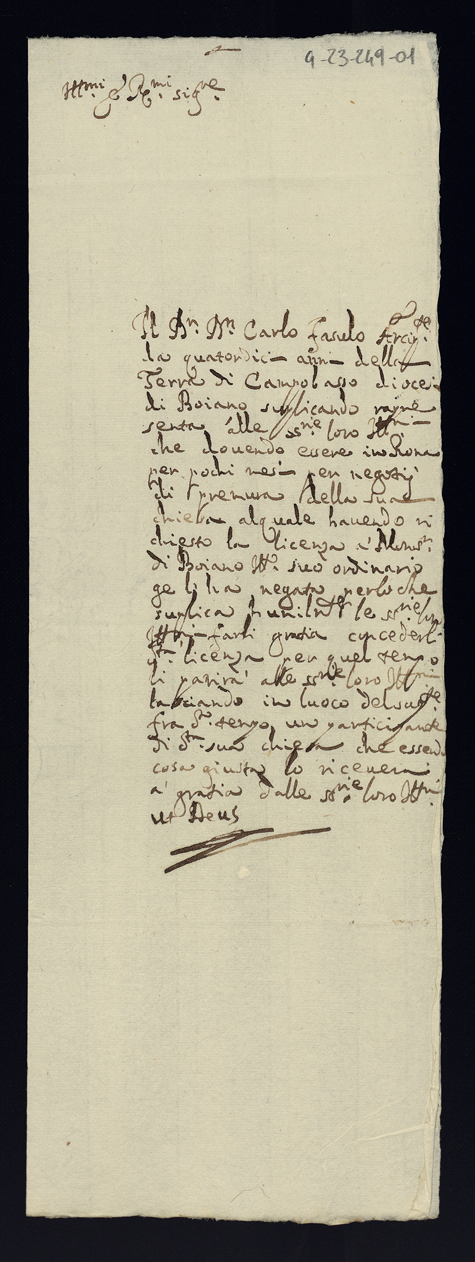 4-23-249-01
Ill.mi et R.mi sig.re
Il Dr. Dn. Carlo Fasulo Arcip.te
da quatordici anni della
Terra di Campobasso diocesi
di Boiano suplicando rapre
senta alle SS.rie loro Ill.mi
che dovendo essere in Roma
per pochi mesi per negotij
di premura della sua
chiesa al quale havendo ri
chiesto la licenza a Mons.r
di Boiano Ill.o suo ordinario
ge li ha negata perloche
suplica humilm.te le SS.rie loro
Ill.mi farli gratia concederli
d.ta licenza per quel tempo
li parira' alle SS.rie loro Ill.mi
lasciando in luoco del sup.te
fra d.o tempo un participante
di d.ta sua chiesa che essendo
cosa giusta lo ricevera
a' gratia dalle SS.rie loro Ill.mi
ut Deus